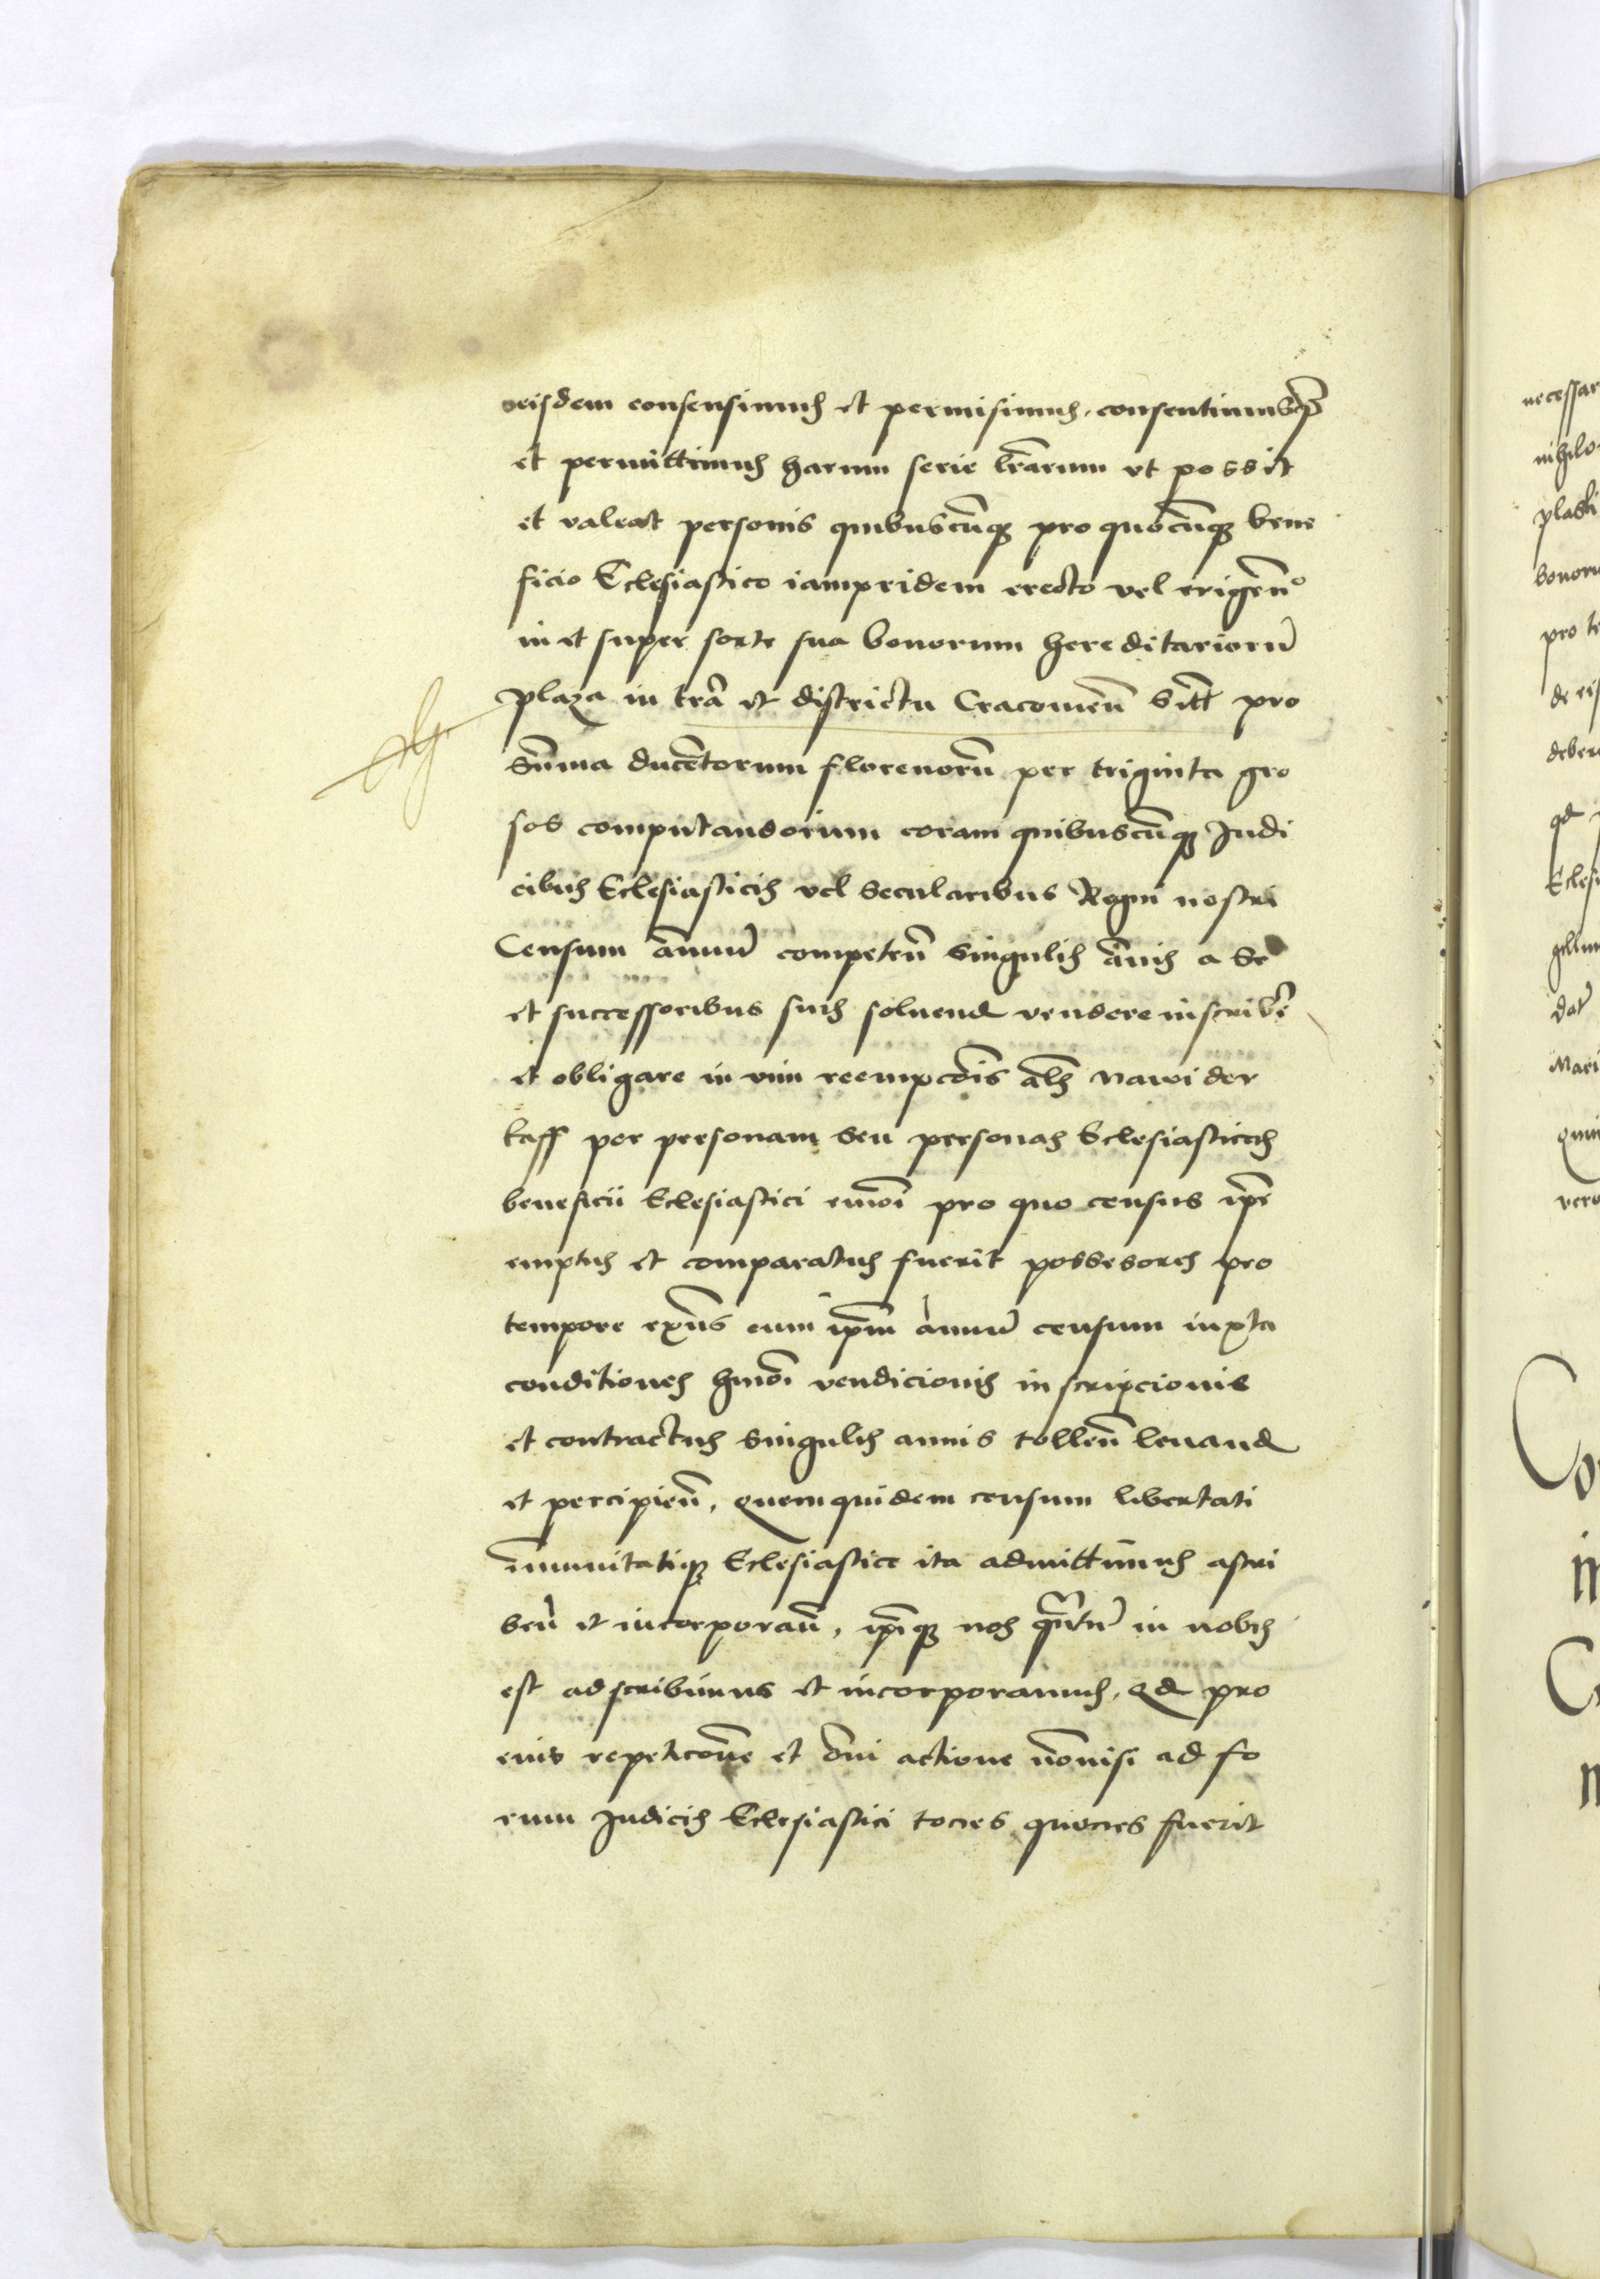 eisdem consensimus et permisimus, consentimusqꝫ
et permittimus harum serie lr̄arum vt possit
et valeat personis quibuscūqꝫ pro quocūqꝫ bene
ficio Eclesiastico iampridem erecto vel erigen̄o
in et super sorte sua bonorum hereditariorū
plaza in tr̄a et districtu Cracouien̄ sitt̄ pro
Sūma ducētorum florenorū per triginta gro
sos computandorum coram quibuscūqꝫ Iudi
cibus Eclesiasticis vel Secularibus Regni nostri
Censum ānuū competen̄ Singulis ānis a Se
et successoribus suis soluend vendere inscribe͞
et obligare in vim reempcōis al̄s nawider
kaff per personam seu personas Eclesiasticas
beneficii Eclesiastici eiuͫōi pro quo census ip̄e
emptus et comparatus fuerit possesores pro
tempore exn̄s eum ip̄m ānuū censum iuxta
conditiones hmōi vendicionis inscripcionis
et contractus singulis annis tollen̄ leuand
et percipien̄, quemquidem censum libertati
īmunitatiqꝫ Eclesiastice ita admittimus astri
ben̄ et incorporan̄, ip̄eqꝫ nos qn̄tū in nobis
est adscribimus et incorporamus, qd pro
eius repeticōne et ōni actione nōnisi ad fo
rum Iudiciis Eclesiastici tocies quocies fuerit